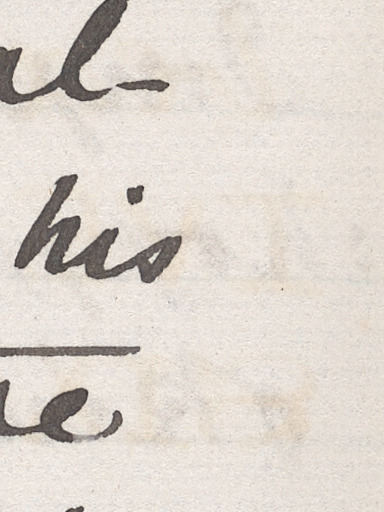 al-
his
e